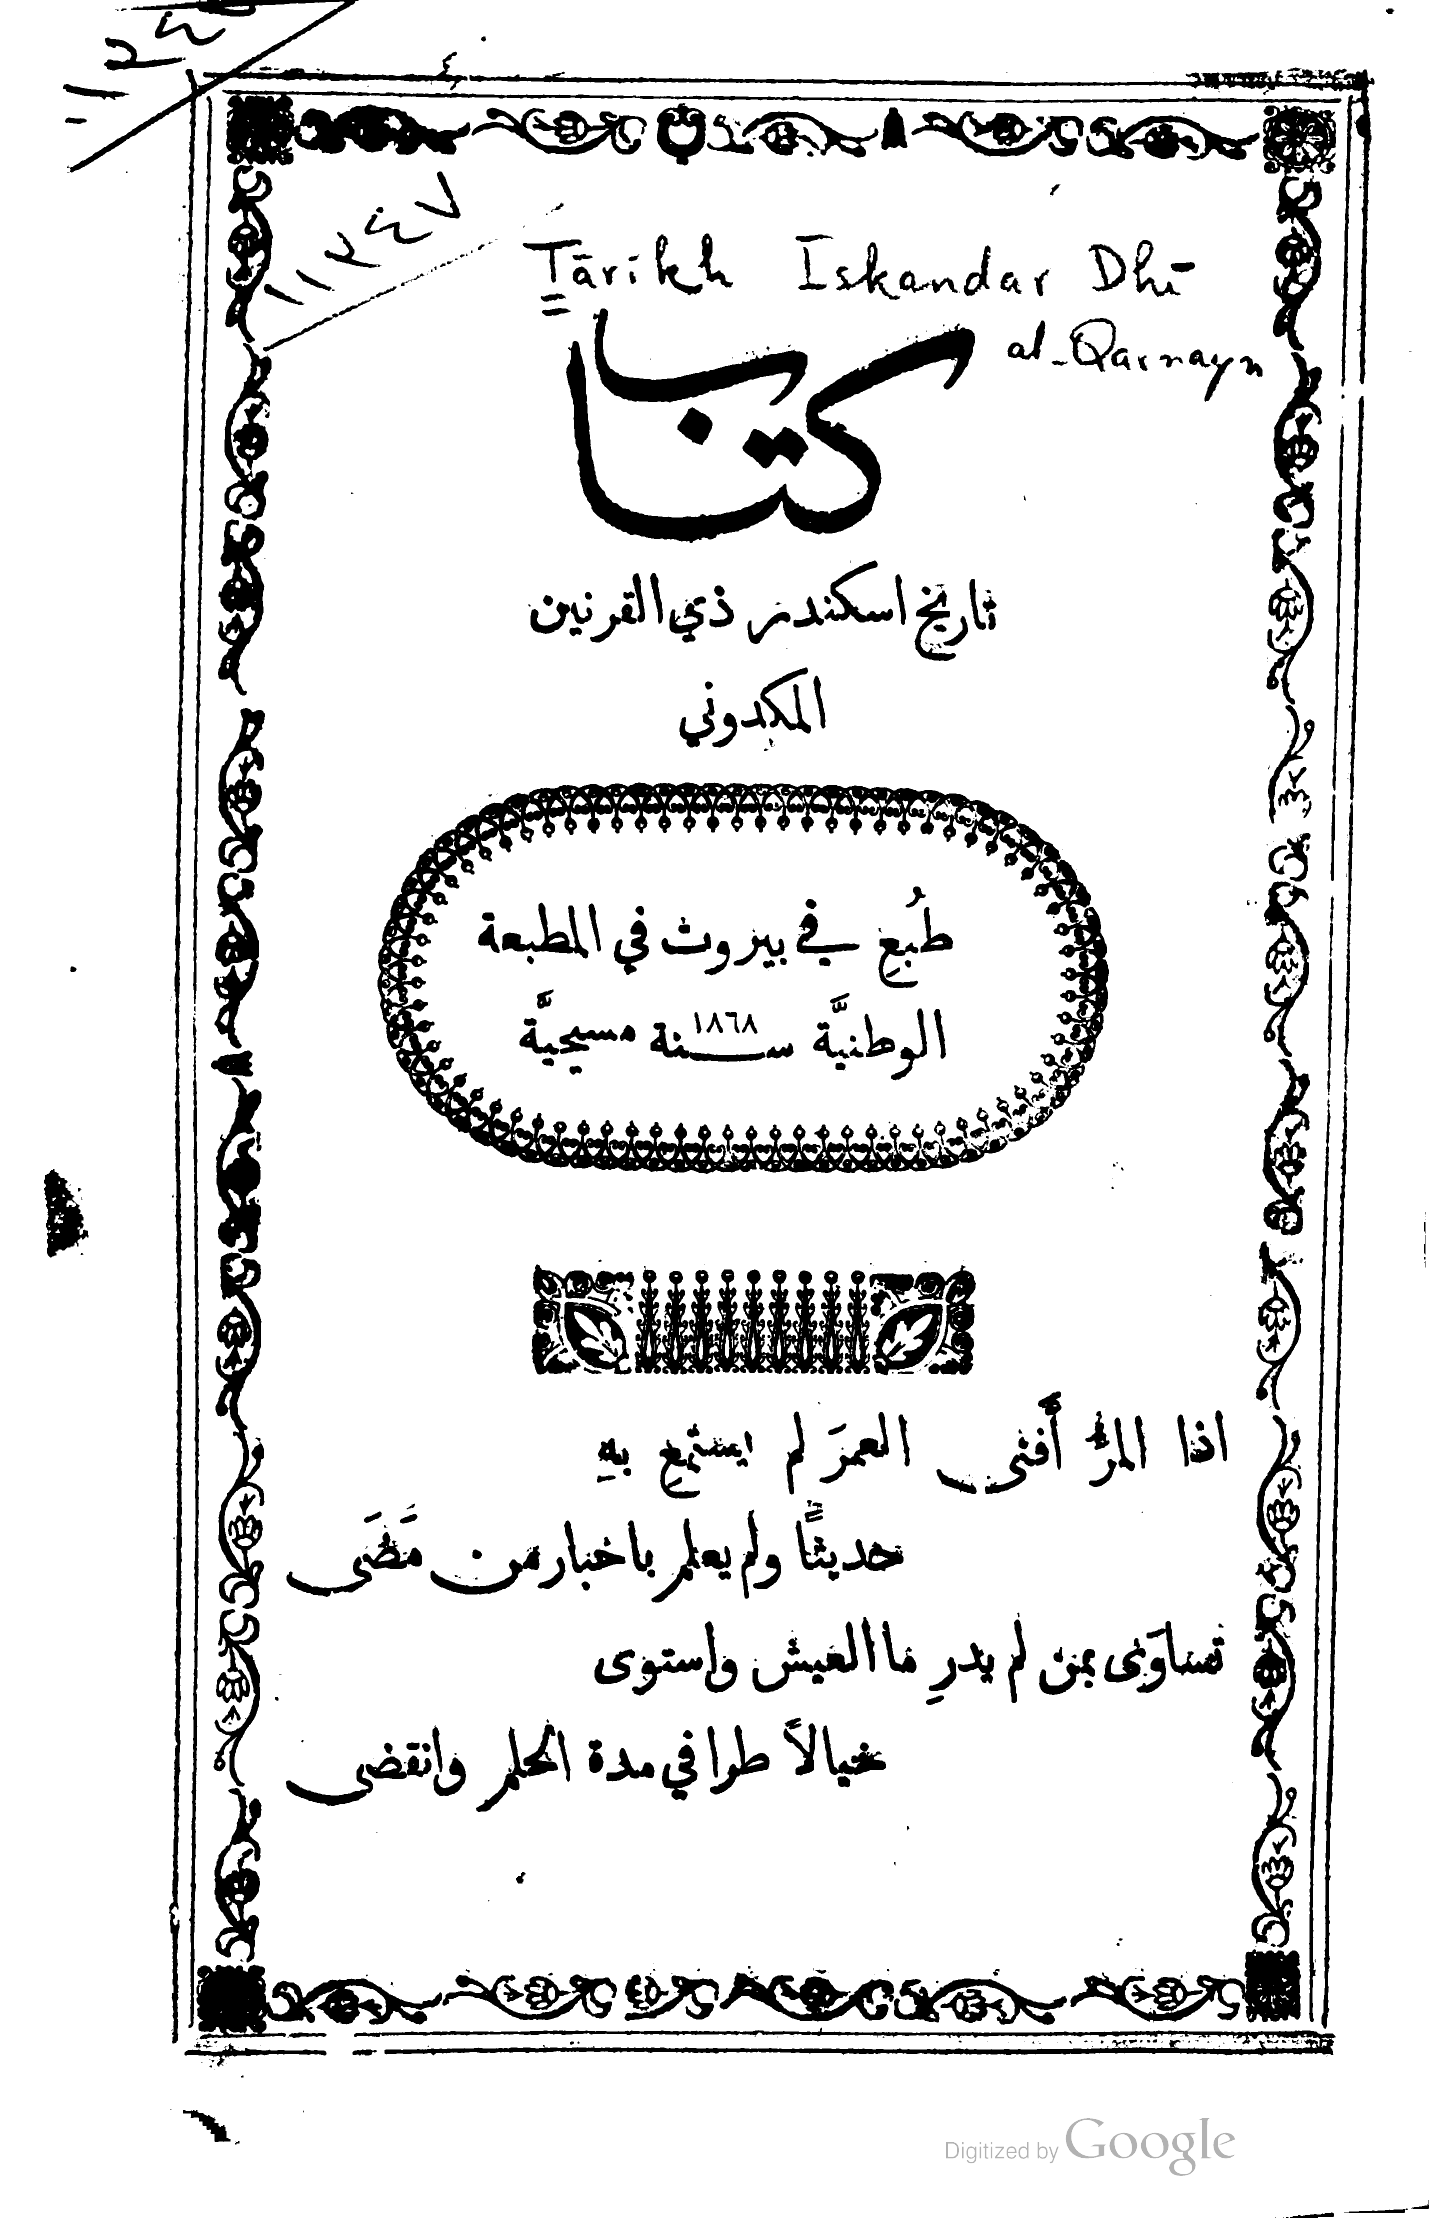 ١٢٤٧
Tārikh Iskandar Dhī
al-Qarnayn
كتاب
تاريخ اسكندر ذي القرنين
المكدوني
طُبع في بيروت في المطبعة
الوطنيَّة سنة ١٨٦٨ مسيحيَّة
اذا المرءُ أَفنى العمرَ لم يستمع بهِ
حديثًا ولم يعلم باخبار من مَضَى
تساوَى بمن لم يدرِ ما العيش واستوى
خيالاً طرا في مدة الحلم وانقضى
Digitized by Google